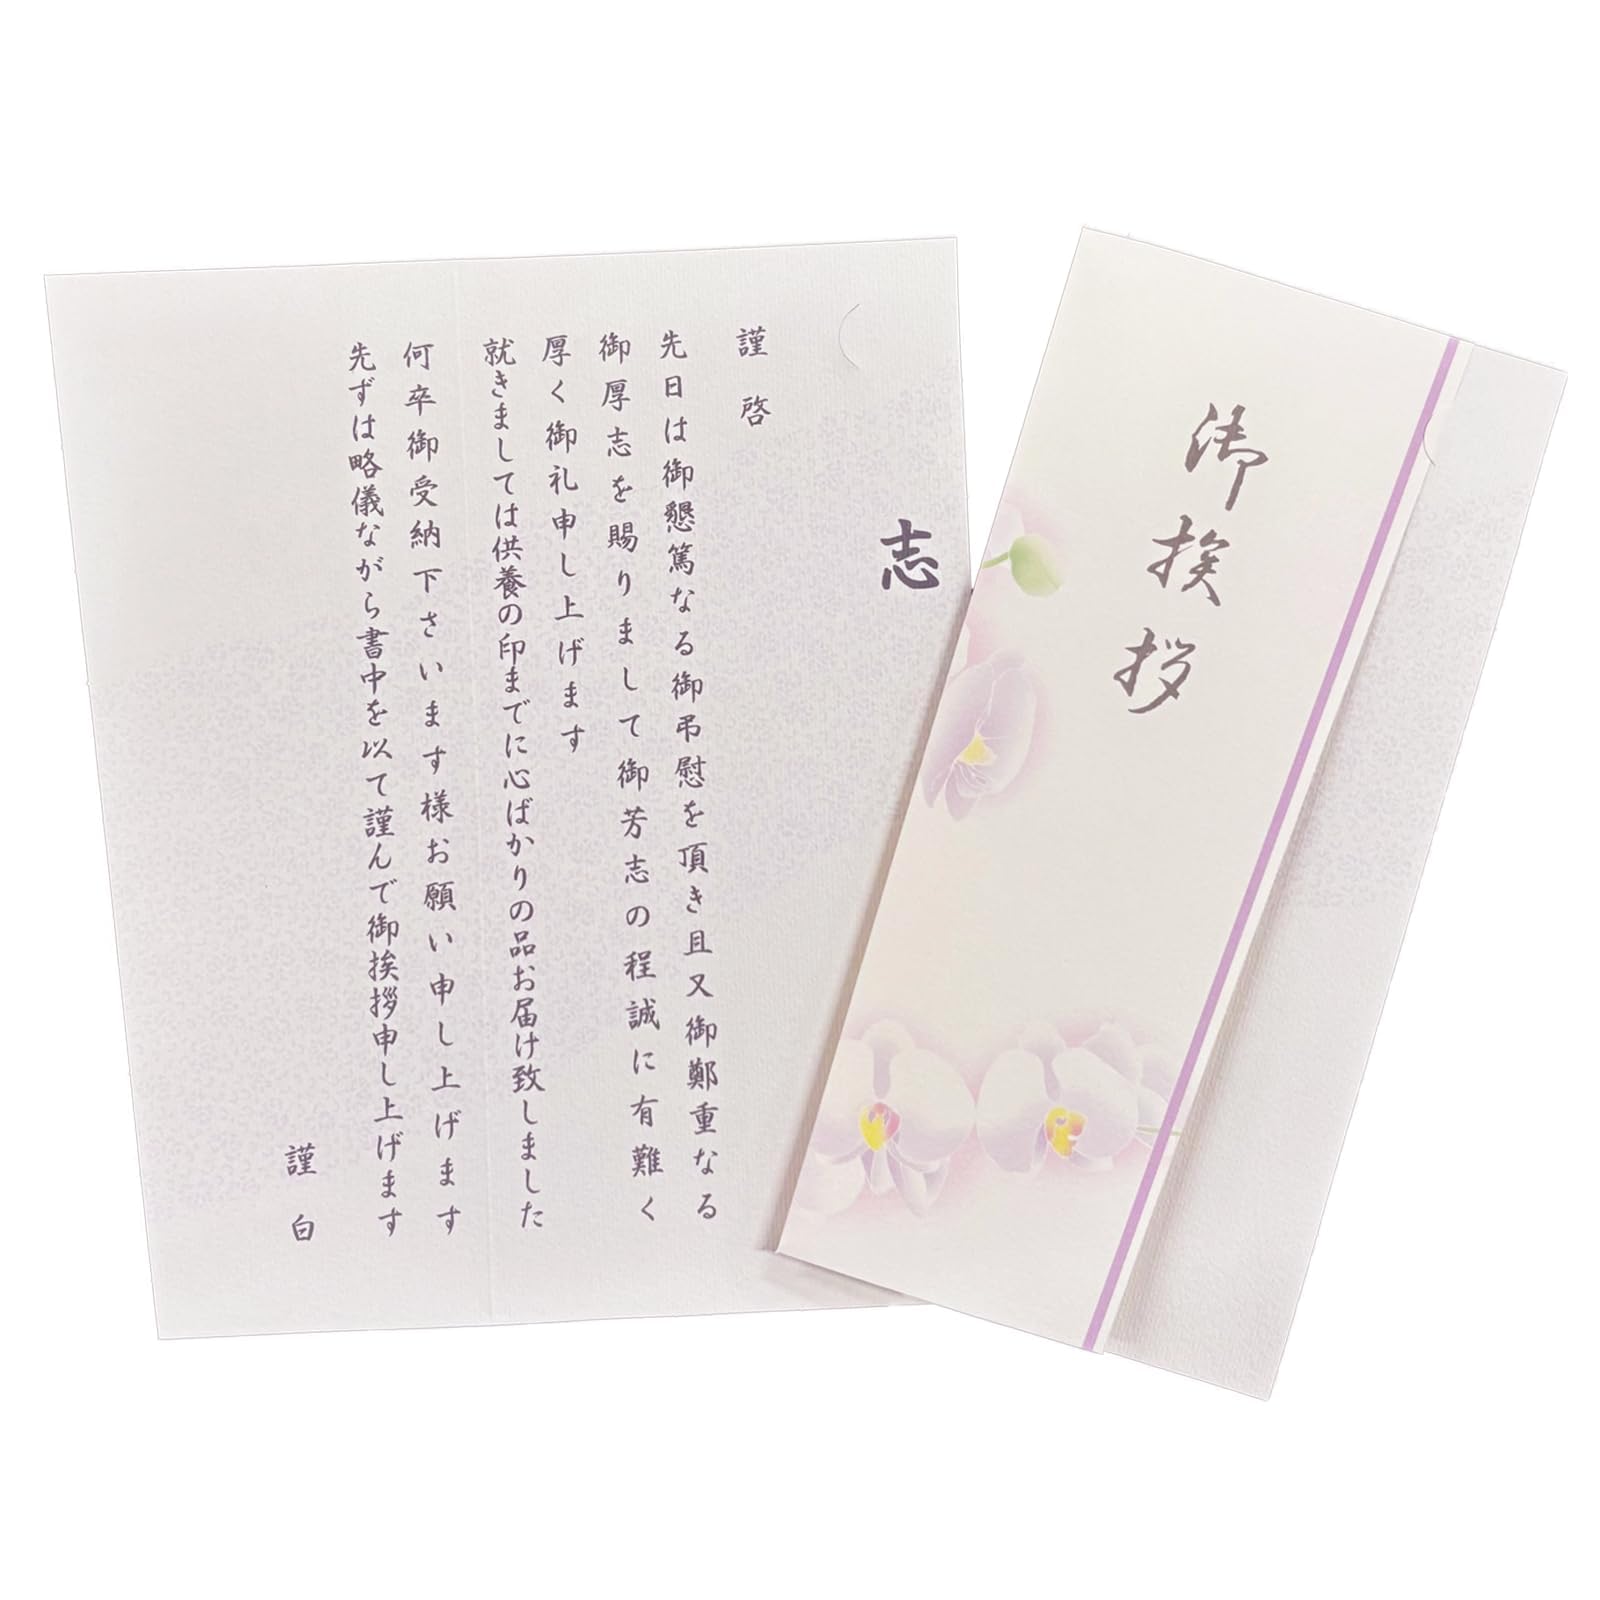 志
謹啓
先日は御懇篤なる御弔慰を頂き且又御鄭重なる
御厚志を賜りまして御芳志の程誠に有難く
厚く御礼申し上げます
就きましては供養の印までに心ばかりの品お届け致しました
何卒御受納下さいます様お願い申し上げます
先ずは略儀ながら書中を以て謹んで御挨拶申し上げます
謹白
御挨拶